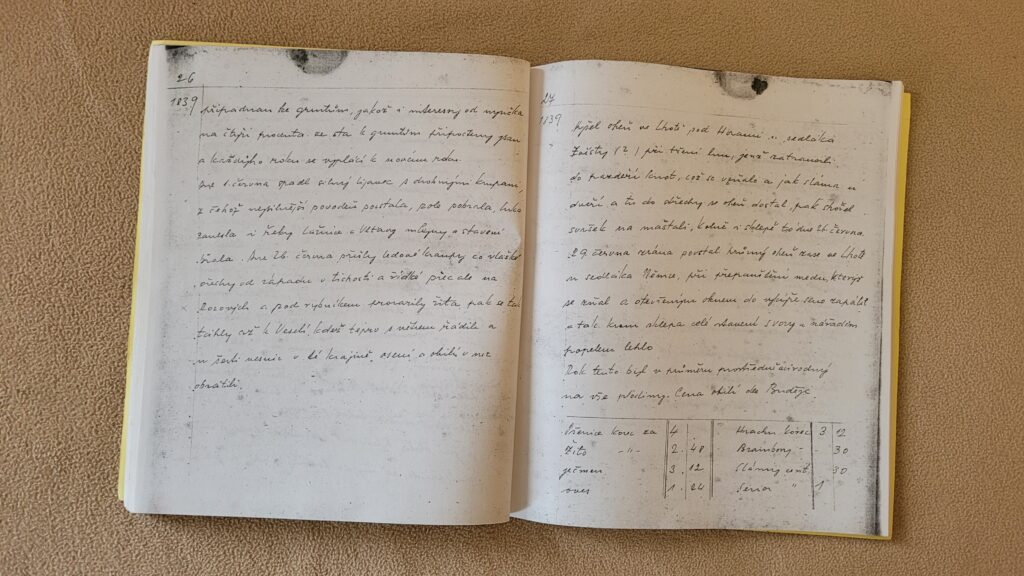 26
1839
připadnou ke gruntům, jakož i interessy od
na čtyři procenta se sta k gruntům připočteny jsou
a každýho roku se vyplácí k novému roku
Dne 1. června spadl silný lijanec s drobnými kroupami,
z čehož nejsilnější povodeň povstala, pole pobrala, luka
zanesla i řeky Lužnice a Vltavy mlejny a stavení
. Dne 26. června přišly ledové kroupy co vlašské
ořechy od západu v tichosti a řídké přec ale na
Borových a pod rybníkem prorazily žita pak se tak
táhly až k Veselí, kdež teprv s větrem řádili a
u šesti vesnic v té krajině, osení a obilí v nic
obrátili.
27
1839
Vyšel oheň ve Lhotě pod Horami u sedláka
(2) při tření lnu, jenž zatrousili
do pazdeří knot, což se vzňalo a jak sláma u
dveří a tu do střechy se oheň dostal, pak shořel
svršek na maštali, kolně a sklepě to dne 26. června.
29 června zrána povstal hrůzný oheň zase ve Lhotě
u sedláka Němce, při přepouštění medu, kterýž
se zňal a otevřeným oknem do vikýře sano zapálil
a tak krom sklepa celé stavení s vory a nářadím
popelem lehlo
Rok tento byl v průměru prostředně úrodný
na vše plodiny. Cena obilí dle Buděje.
Pšenice korec za 4 Hrachu korec 3 12
Žito -"- 2. 48 Brambory - - 30
ječmen 3. 12 Slámy cent. 30
oves 1. 24 Sena " 1